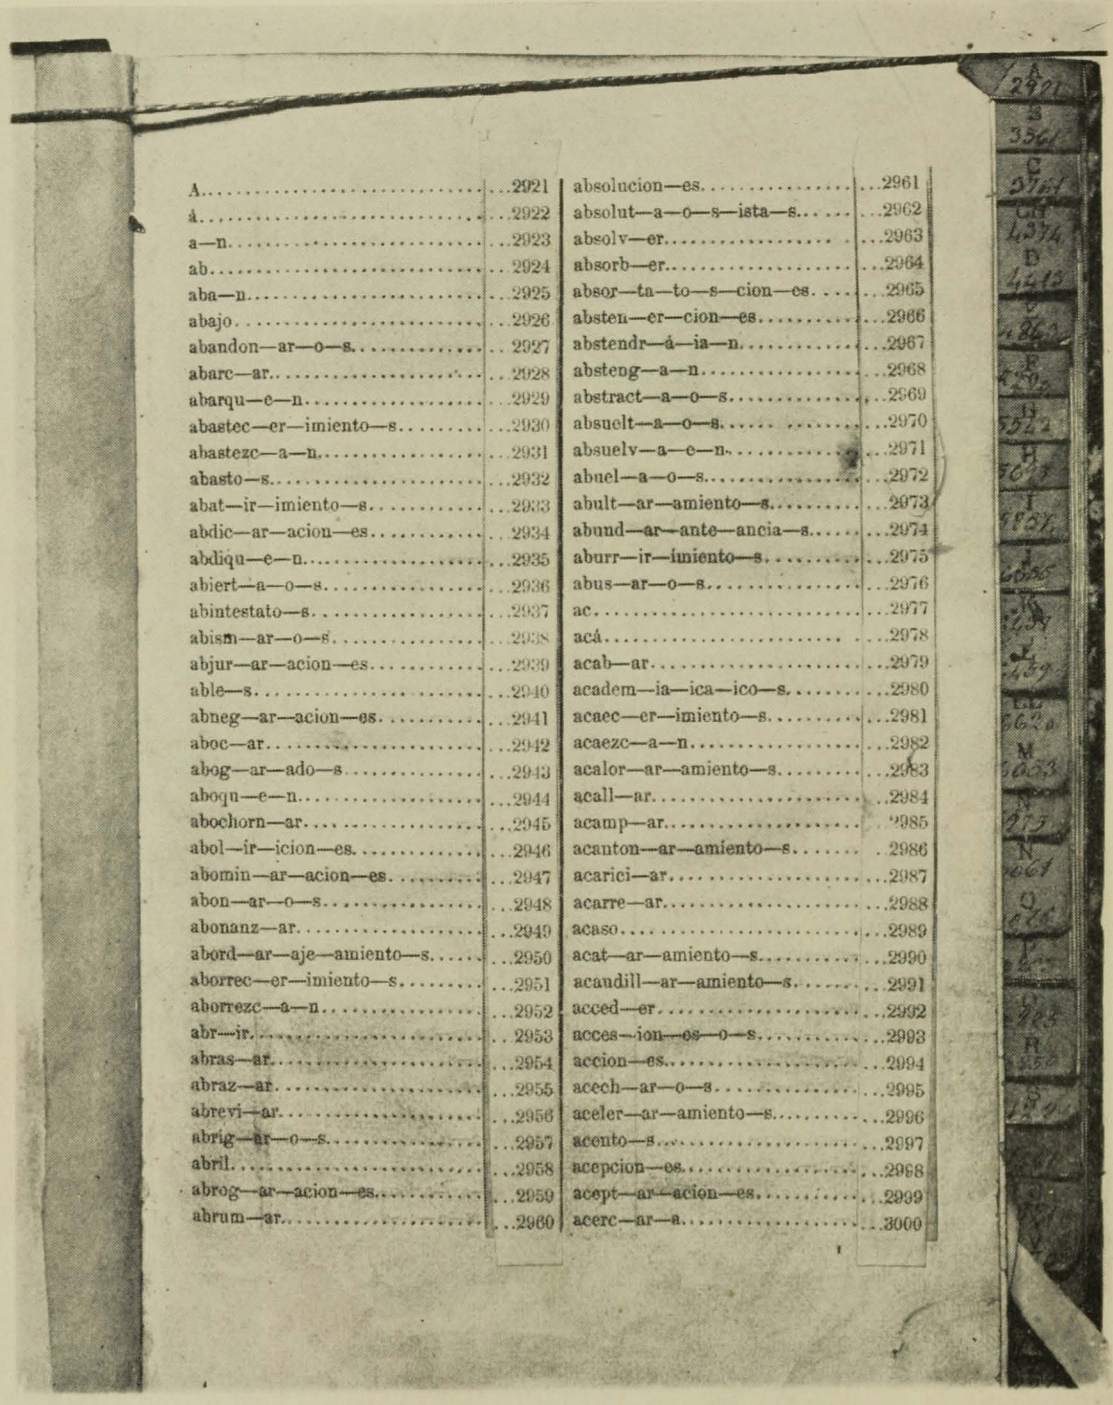 A 2921
á 2922
a—n 2923
ab 2924
aba—n 2925
abajo 2926
abandon—ar—o—s 2927
abarc—ar 2928
abarqu—e—n 2929
abastec—er—imiento—s 2930
abastezc—a—n 2931
abasto—s 2932
abat—ir—imiento—s 2933
abdic—ar—acion—es 2934
abdiqu—e—n 2935
abiert—a—o—s 2936
abintestato—s 2937
abism—ar—o—s 2938
abjur—ar—acion—es 2939
able—s 2940
abneg—ar—acion—es 2941
aboc—ar 2942
abog—ar—ado—s 2943
aboqu—e—n 2944
abochorn—ar 2945
abol—ir—icion—es 2946
abomin—ar—acion—es 2947
abon—ar—o—s 2948
abonanz—ar 2949
abord—ar—aje—amiento—s 2950
aborrec—er—imiento—s 2951
aborrezc—a—n 2952
abr—ir 2953
abras—ar 2954
abraz—ar 2955
abrevi—ar 2956
abrig—ar—o—s 2957
abril 2958
abrog—ar—acion—es 2959
abrum—ar 2960
absolucion—es 2961
absolut—a—o—s—ista—s 2962
absolv—er 2963
absorb—er 2964
absor—ta—to—s—cion—es 2965
absten—er—cion—es 2966
abstendr—á—ia—n 2967
absteng—a—n 2968
abstract—a—o—s 2969
absuelt—a—o—s 2970
absuelv—a—e—n 2971
abuel—a—o—s 2972
abult—ar—amiento—s 2973
abund—ar—ante—ancia—s 2974
aburr—ir—imiento—s 2975
abus—ar—o—s 2976
ac 2977
acá 2978
acab—ar 2979
academ—ia—ica—ico—s 2980
acaec—er—imiento—s 2981
acaezc—a—n 2982
acalor—ar—amiento—s 2983
acall—ar 2984
acamp—ar 2985
acanton—ar—amiento—s 2986
acarici—ar 2987
acarre—ar 2988
acaso 2989
acat—ar—amiento—s 2990
acaudill—ar—amiento—s 2991
acced—er 2992
acces—ion—es—o—s 2993
accion—es 2994
acech—ar—o—s 2995
aceler—ar—amiento—s 2996
acento—s 2997
acepcion—es 2998
acept—ar—acion—es 2999
acerc—ar—a 3000
A
2921
B
C
CH
4374
D
H
I
J
K
L
LL
M
N
O
R
S